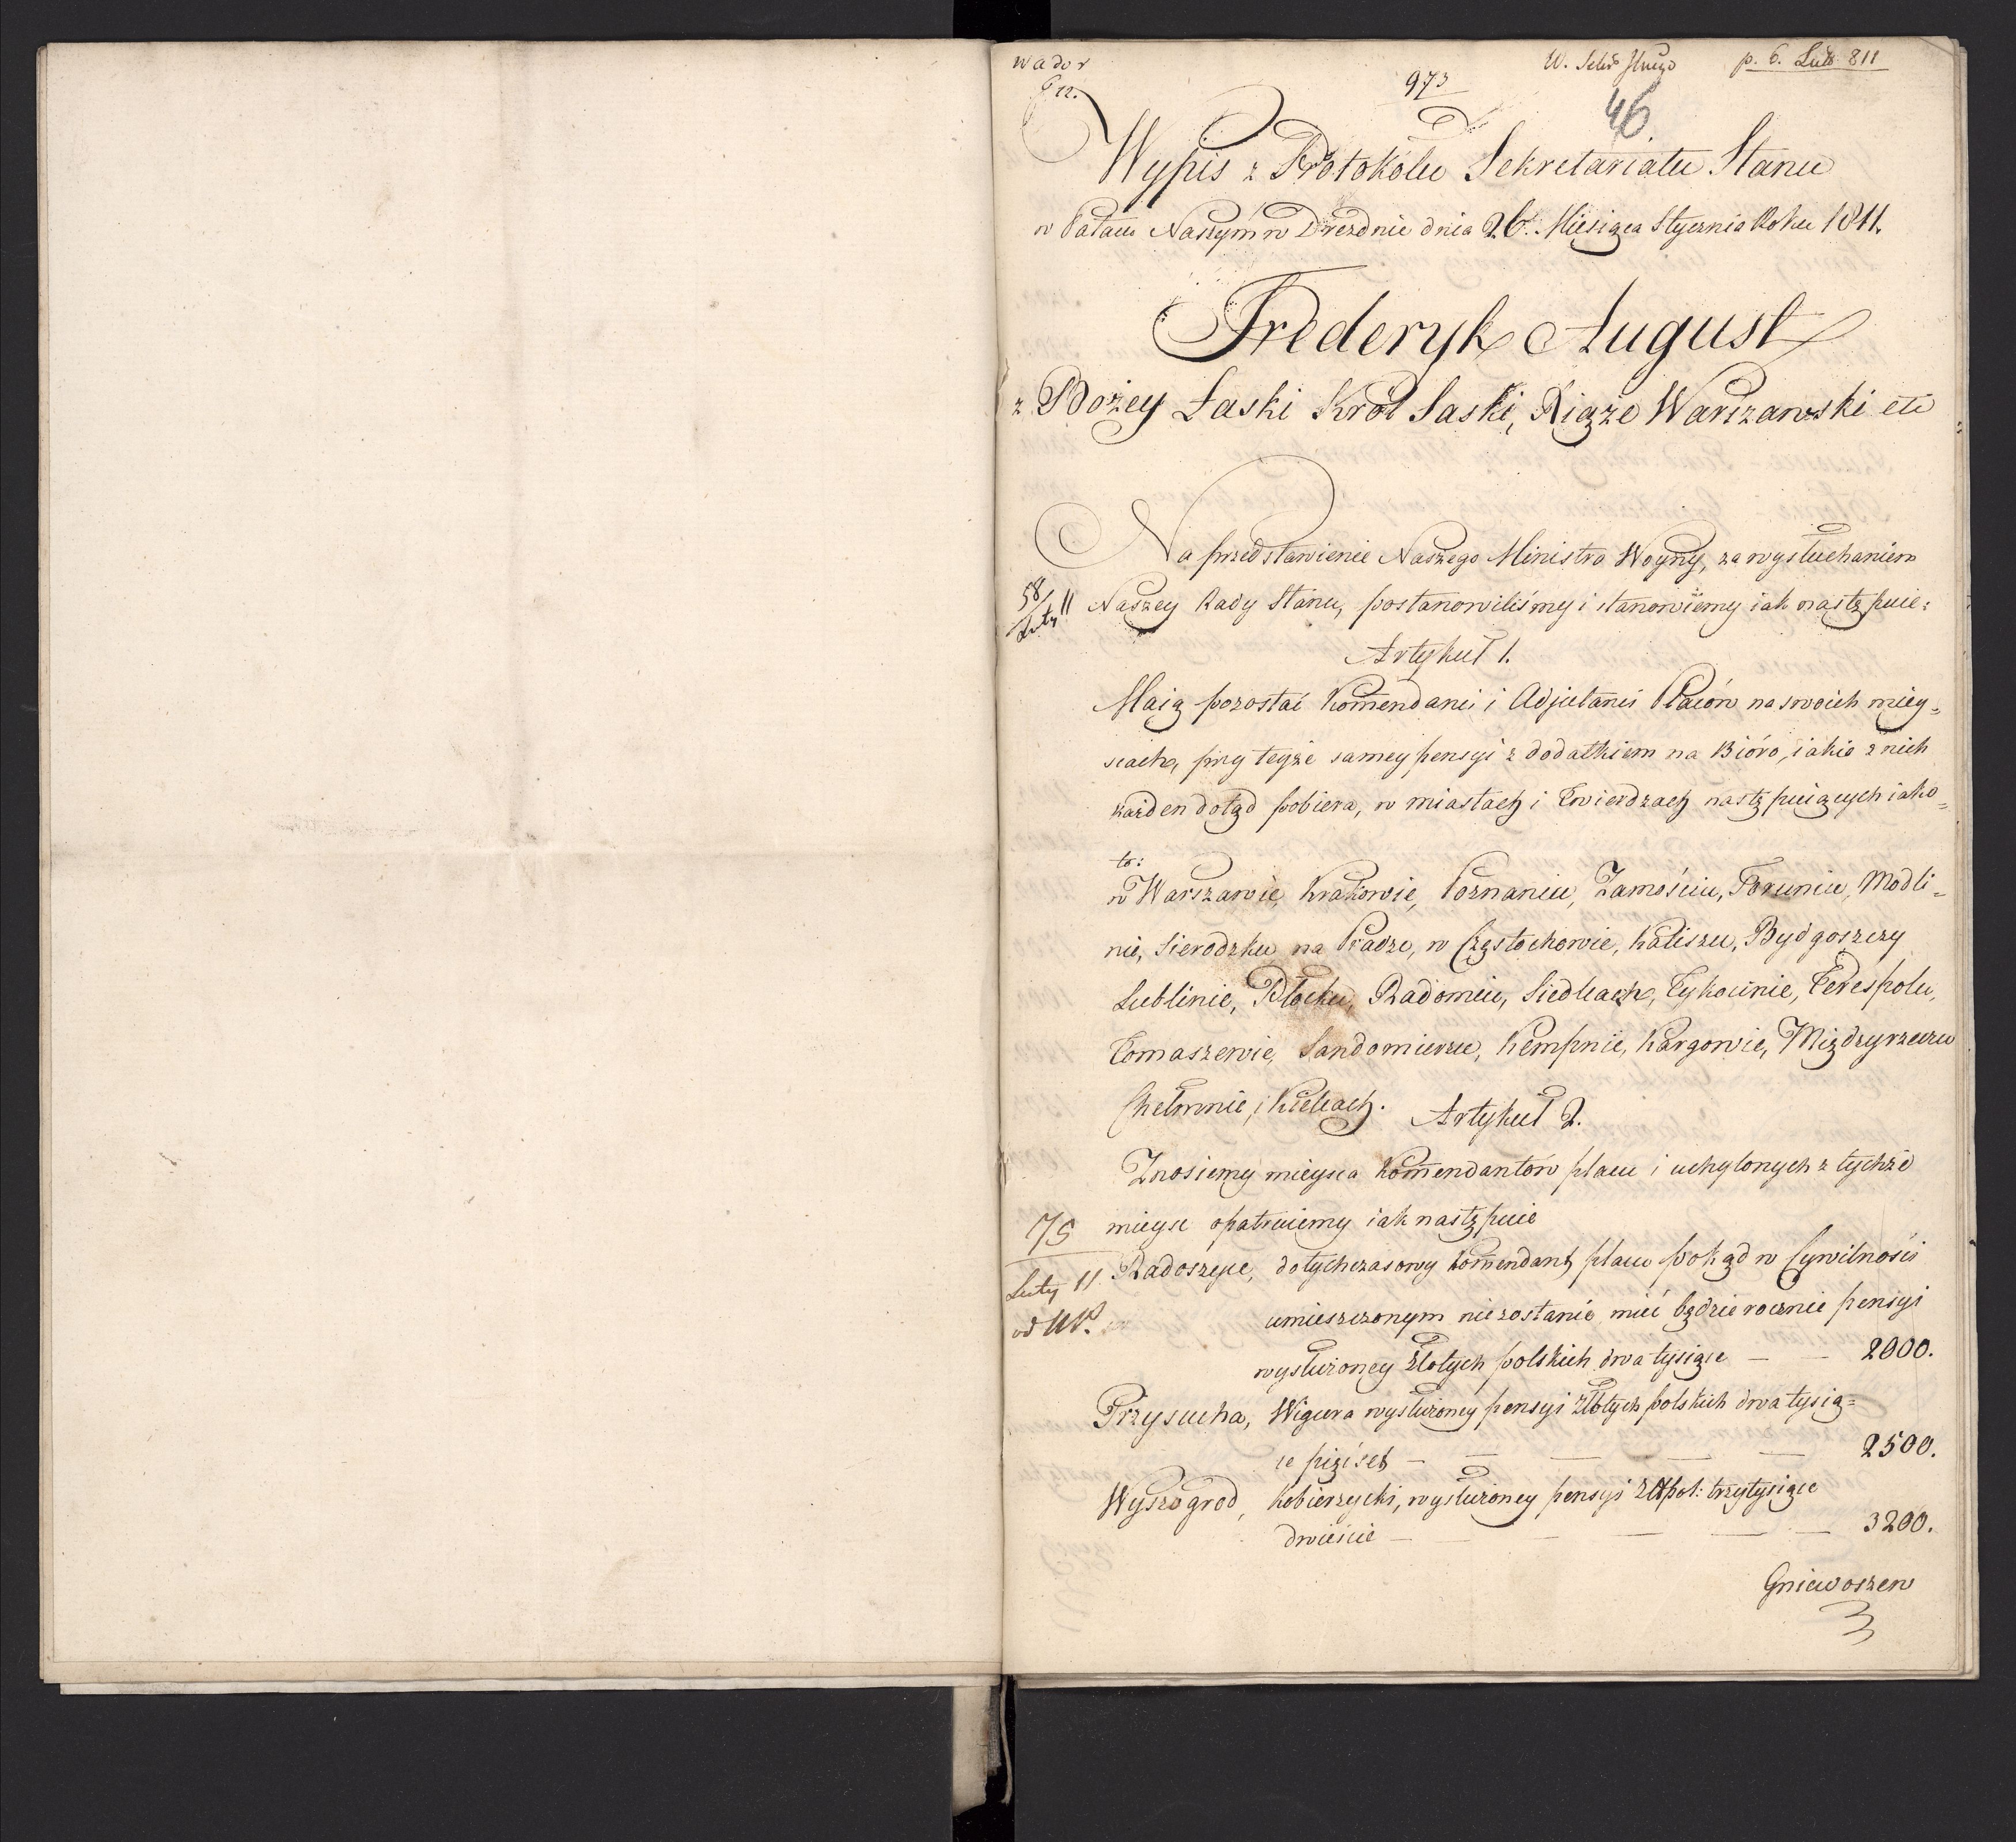 wador
p. 6. Lut 811
973
46
Wypis z Protokólu Sekretariatu Stanu
w Pałacu Naszym w Dreznie dnia 26. Miesiąca Stycznia Roku 1811.
Frederyk August
z Bożey Łaski Król Saski, Xiąże Warszawski etc
Na przedstawienie Naszego Ministra Woyny, za wysłuchaniem
58/Luty 11
Naszey Rady Stanu, postanowiliśmy i stanowiemy iak następuie:
Artykuł 1.
Maią pozostać Komendanci i Adjutanci Placów na swoich miey=
scach, przy teyże samey pensyi z dodatkiem na Bióro, iakie z nich
każden dotąd pobiera, w miastach i Twierdzach następuiących iako=
to:
w Warszawie, Krakowie, Poznaniu, Zamościu, Toruniu, Modli=
nie, Sierodzku na Pradze, w Częstochowie, Kaliszu, Bydgoszczy
Lublinie, Płocku, Radomiu, Siedlcach, Tykocinie, Terespolu,
Tomaszewie, Sandomierzu, Kempnie, Kargowie, Międzyrzeczu
Chełmnie, i Kielcach.
Artykuł 2.
Znosiemy mieysca Komendantów placu i uchylonych z tychże
mieysc opatruiemy iak następuie
75
Luty 11.
Radoszyce, dotychczasowy komendant placu pokąd w Cywilności
umieszczonym nie zostanie mieć będzie rocznie pensyi
wysłużoney Złotych polskich dwa tysiące — — 2000.
Przysucha, Wigura wysłużoney pensyi Złotych polskich dwa tysią=
ce pięćset — — — — — 2500.
Wyszogrod, Kobierzycki, wysłużoney pensyi Złpol: trzy tysiące
dwieście — — — — — 3200.
Gniewoszew